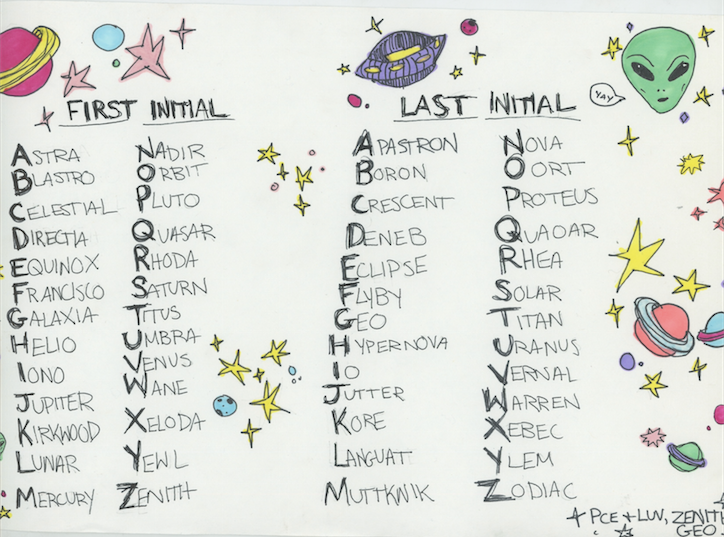 FIRST INITIAL
ASTRA
BLASTRO
CELESTIAL
DIRECTIA
EQUINOX
FRANCISCO
GALAXIA
HELIO
IONO
JUPITER
KIRKWOOD
LUNAR
MERCURY
NADIR
ORBIT
PLUTO
QUASAR
RHODA
SATURN
TITUS
UMBRA
VENUS
WANE
XELODA
YEWL
ZENITH
LAST INITIAL
APASTRON
BORON
CRESCENT
DENEB
ECLIPSE
FLYBY
GEO
HYPERNOVA
IO
JUTTER
KORE
LANGUATT
MUTTKNIK
NOVA
OORT
PROTEUS
QUAOAR
RHEA
SOLAR
TITAN
URANUS
VERNAL
WARREN
XEBEC
YLEM
ZODIAC
YAY
PCE + LUV, ZENITH
GEO